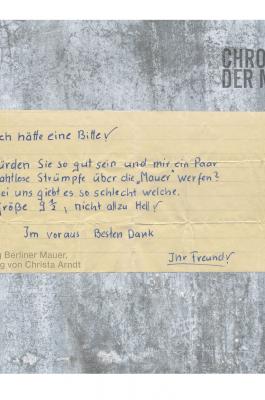 CHRO
DER M
ch hätte eine Bitte!
ürden Sie so gut sein und mir ein Paar
ahtlose Strümpfe über die „Mauer" werfen?
ei uns giebt es so schlecht welche.
röße 9½, nicht allzu Hell!
Im voraus Besten Dank
Ihr Freund!
g Berliner Mauer,
g von Christa Arndt